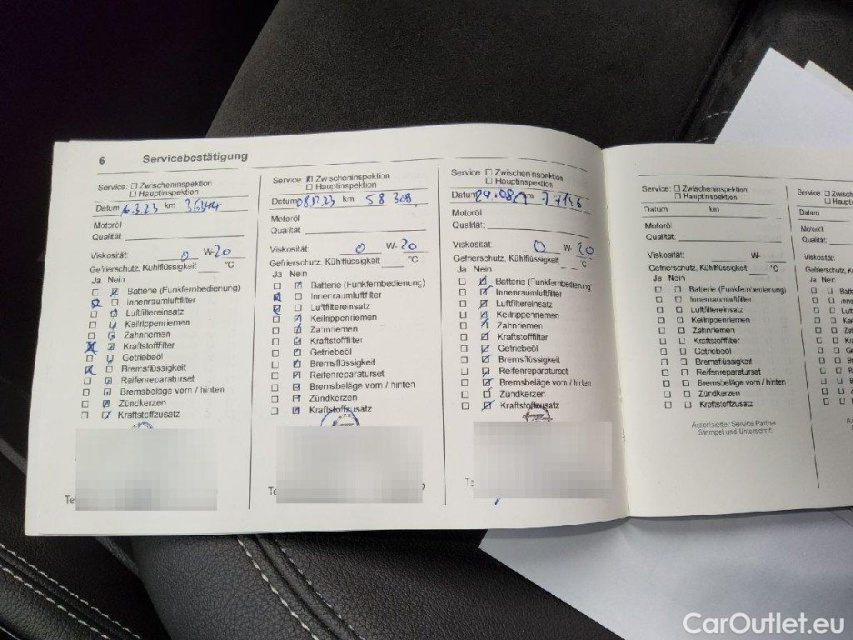 6 Servicebestätigung
Service: Zwischeninspektion
Hauptinspektion
Datum 6.3.23 km
Motoröl
Qualität:
Viskosität: 0 W-20
Gefrierschutz, Kühlflüssigkeit °C
Ja Nein
Batterie (Funkfernbedienung)
Innenraumluftfilter
Luftfiltereinsatz
Keilrippenriemen
Zahnriemen
Kraftstofffilter
Getriebeöl
Bremsflüssigkeit
Reifenreparaturset
Bremsbeläge vorn / hinten
Zündkerzen
Kraftstoffzusatz
Te
Service: Zwischeninspektion
Hauptinspektion
Datum km 58 308
Motoröl
Qualität:
Viskosität: 0 W-20
Gefrierschutz, Kühlflüssigkeit °C
Ja Nein
Batterie (Funkfernbedienung)
Innenraumluftfilter
Luftfiltereinsatz
Keilrippenriemen
Zahnriemen
Kraftstofffilter
Getriebeöl
Bremsflüssigkeit
Reifenreparaturset
Bremsbeläge vorn / hinten
Zündkerzen
Kraftstoffzusatz
Te
Service: Zwischeninspektion
Hauptinspektion
Datum
Motoröl
Qualität:
Viskosität: 0 W-20
Gefrierschutz, Kühlflüssigkeit °C
Ja Nein
Batterie (Funkfernbedienung)
Innenraumluftfilter
Luftfiltereinsatz
Keilrippenriemen
Zahnriemen
Kraftstofffilter
Getriebeöl
Bremsflüssigkeit
Reifenreparaturset
Bremsbeläge vorn / hinten
Zündkerzen
Kraftstoffzusatz
Service: Zwischeninspektion
Hauptinspektion
Datum km
Motoröl
Qualität:
Viskosität: W-
Gefrierschutz, Kühlflüssigkeit °C
Ja Nein
Batterie (Funkfernbedienung)
Innenraumluftfilter
Luftfiltereinsatz
Keilrippenriemen
Zahnriemen
Kraftstofffilter
Getriebeöl
Bremsflüssigkeit
Reifenreparaturset
Bremsbeläge vorn / hinten
Zündkerzen
Kraftstoffzusatz
Autorisierter Service Partner
Stempel und Unterschrift
Service:
Datum
Motoröl
Qualität:
Viskosität:
Ja Nein
CarOutlet.eu